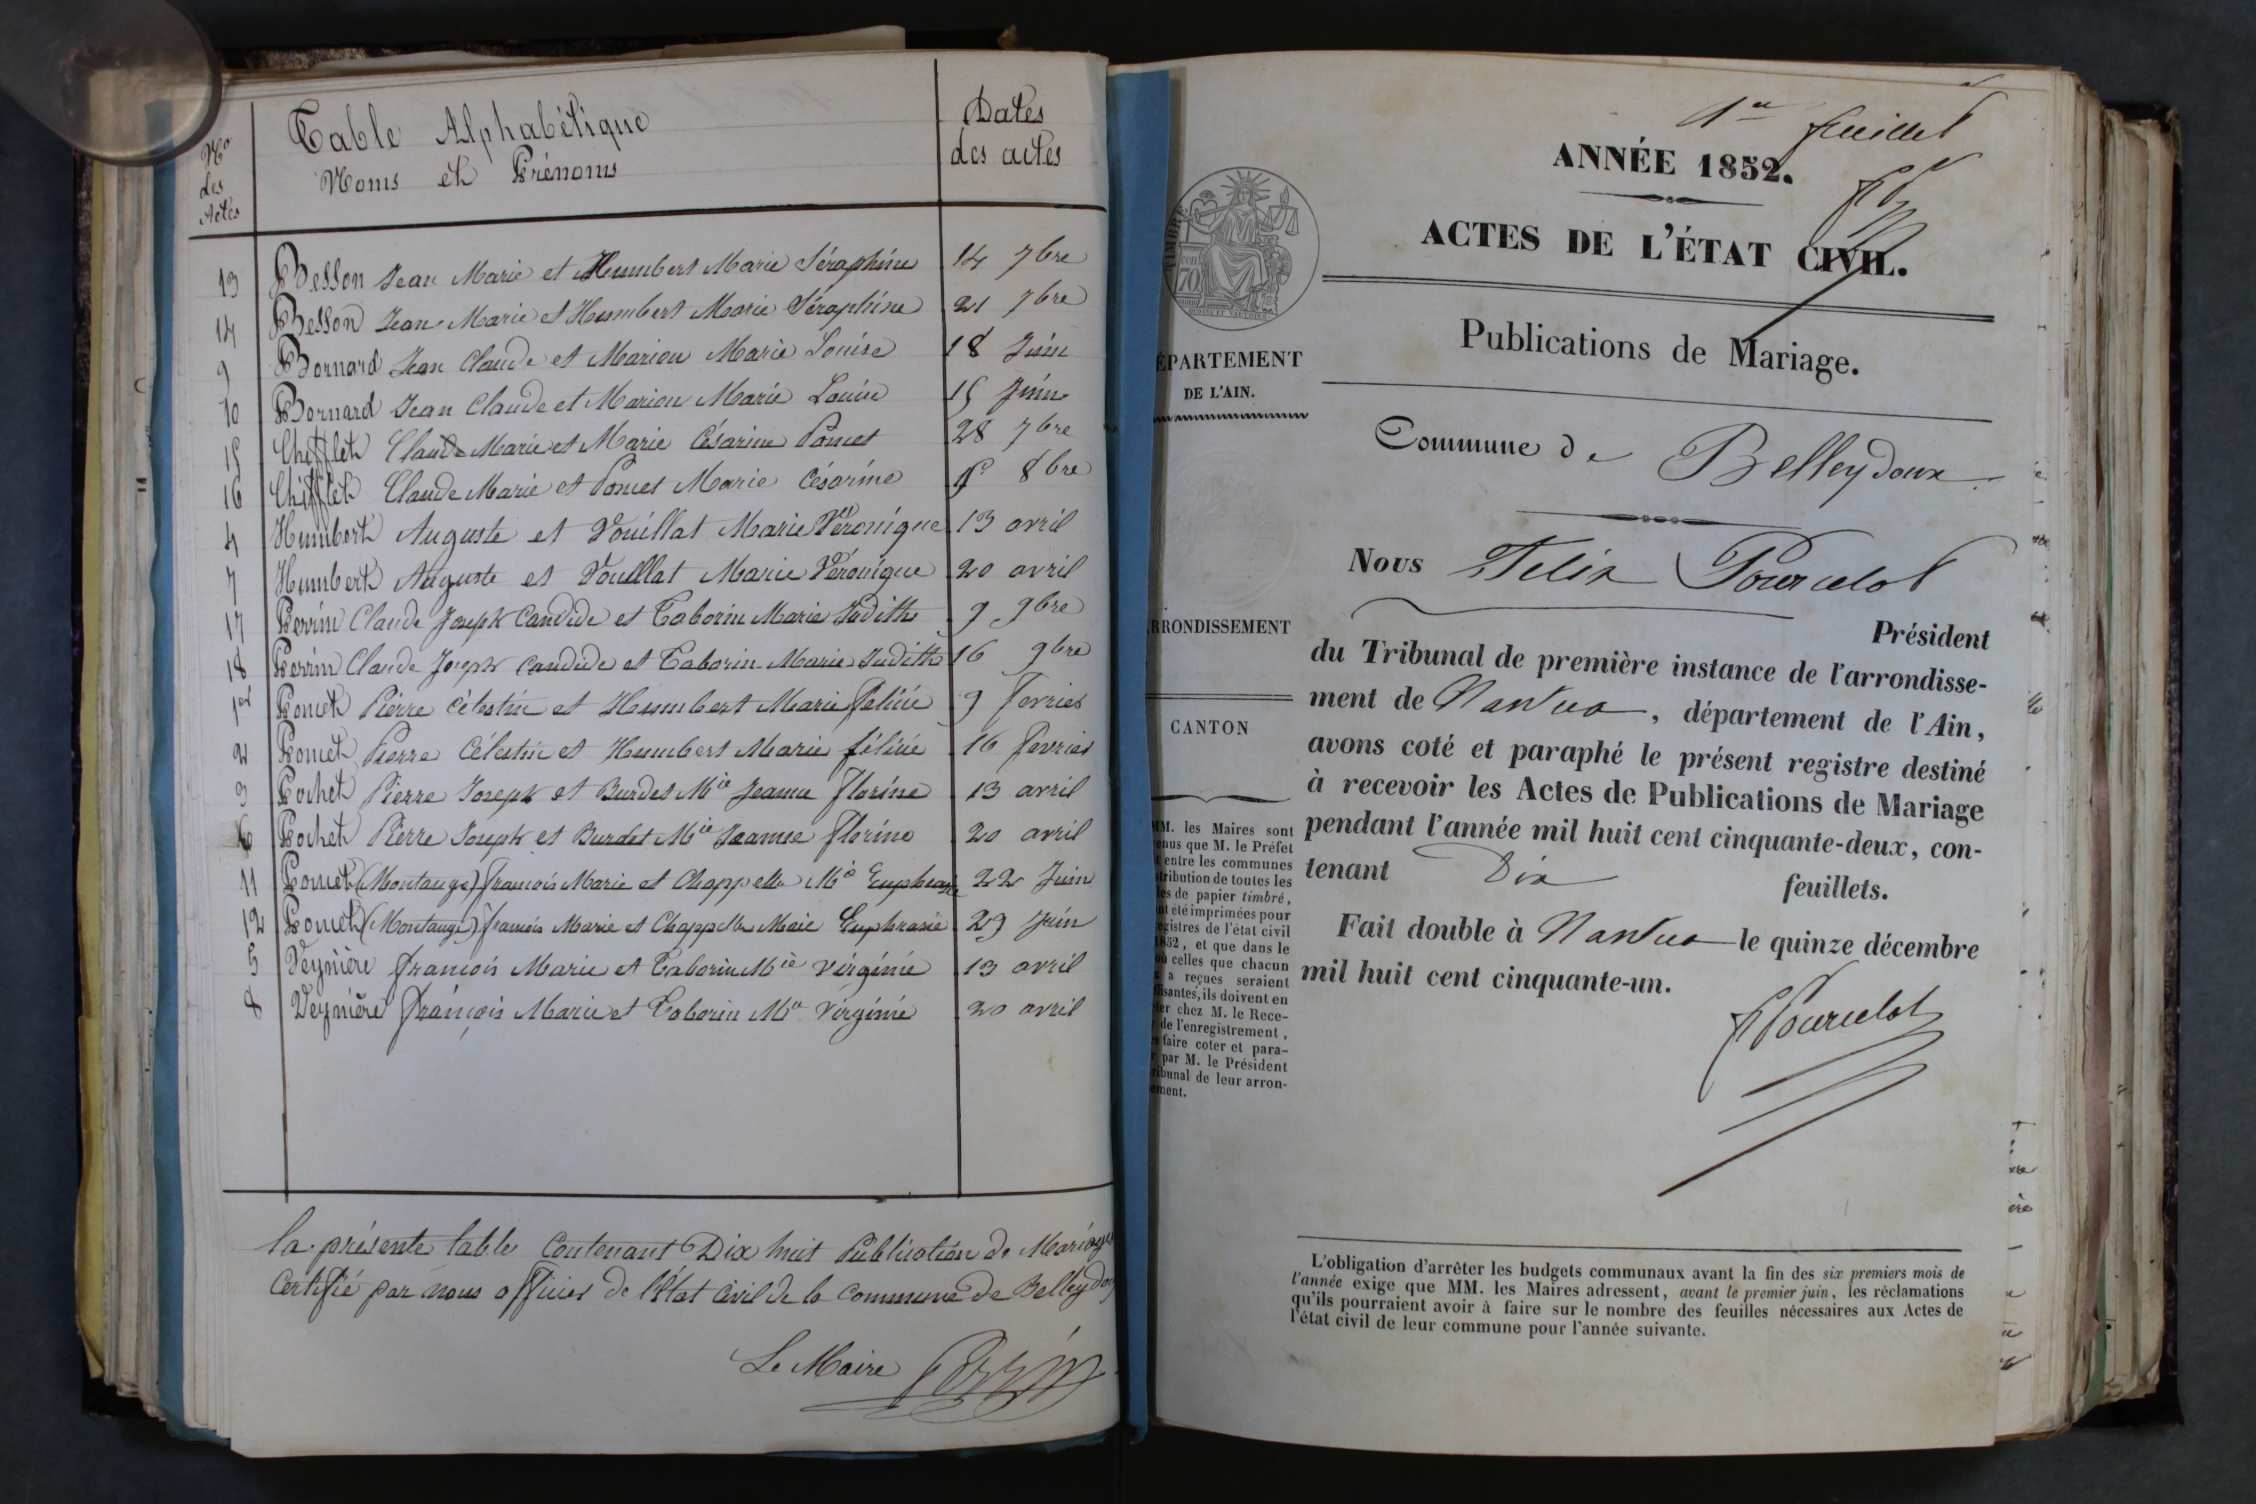 Table Alphabétique
Nos des Actes
Noms et Prénoms
Dates des actes
13 Besson Jean Marie et Humbert Marie Séraphine 14 7bre
14 Besson Jean Marie et Humbert Marie Séraphine 21 7bre
9 Bornard Jean Claude et Marion Marie Louise 18 Juin
10 Bornard Jean Claude et Marion Marie Louise 15 Juin
15 Chifflet Claude Marie et Marie Césarine Poncet 28 7bre
16 Chifflet Claude Marie et Poncet Marie Césarine 8bre
4 Humbert Auguste et Vouillat Marie Véronique 13 avril
7 Humbert Auguste et Vouillat Marie Véronique 20 avril
17 Perrin Claude Joseph Candide et Taborin Marie Judith 9 9bre
18 Perrin Claude Joseph Candide et Taborin Marie Judith 16 9bre
1er Poncet Pierre Célestin et Humbert Marie Féliçie 9 Fevrier
2 Poncet Pierre Célestin et Humbert Marie féliçie 16 Fevrier
3 Pochet Pierre Joseph et Burdet Mie Jeanne florine 13 avril
6 Pochet Pierre Joseph et Burdet Mie Jeanne florine 20 avril
11 Poncet (Montange) françois Marie et Chappelle Mie Euphrasie 22 Juin
12 Poncet (Montange) françois Marie et Chappelle Marie Euphrasie 29 Juin
5 Veynière françois Marie et Taborin Mie virginie 13 avril
8 Veynière françois Marie et Taborin Mie virginie 20 avril
la présente table Contenant Dix huit Publication de Mariage
Certifié par nous officier de l'état civil de la commune de Belleydoux
Le Maire Perrin
1er feuillet
ANNÉE 1852.
ACTES DE L'ÉTAT CIVIL.
Publications de Mariage.
TIMBRE
70
ÉPARTEMENT
DE L'AIN.
RRONDISSEMENT
CANTON
MM. les Maires sont
enus que M. le Préfet
t entre les communes
tribution de toutes les
les de papier timbré,
nt été imprimées pour
egistres de l'état civil
1852, et que dans le
où celles que chacun
x a reçues seraient
fisantes, ils doivent en
ter chez M. le Rece-
r de l'enregistrement,
es faire coter et para-
r par M. le Président
ribunal de leur arron-
ement.
Commune de Belleydoux
Nous Felix Pourcelot
Président
du Tribunal de première instance de l'arrondisse-
ment de Nantua, département de l'Ain,
avons coté et paraphé le présent registre destiné
à recevoir les Actes de Publications de Mariage
pendant l'année mil huit cent cinquante-deux, con-
tenant Dix feuillets.
Fait double à Nantua le quinze décembre
mil huit cent cinquante-un.
F Pourcelot
L'obligation d'arrêter les budgets communaux avant la fin des six premiers mois de
l'année exige que MM. les Maires adressent, avant le premier juin, les réclamations
qu'ils pourraient avoir à faire sur le nombre des feuilles nécessaires aux Actes de
l'état civil de leur commune pour l'année suivante.